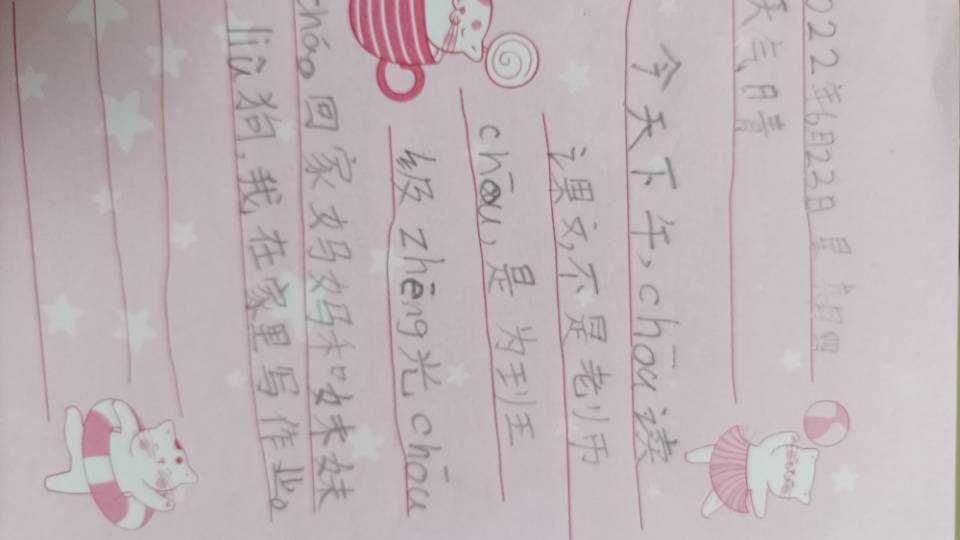 022年6月23日 星期
天气晴
今天下午,chōu读
课文,不是老师
chōu,是为到王
级zhēng光chōu
cháo。回家妈妈和妹妹
liù狗,我在家里写作业。